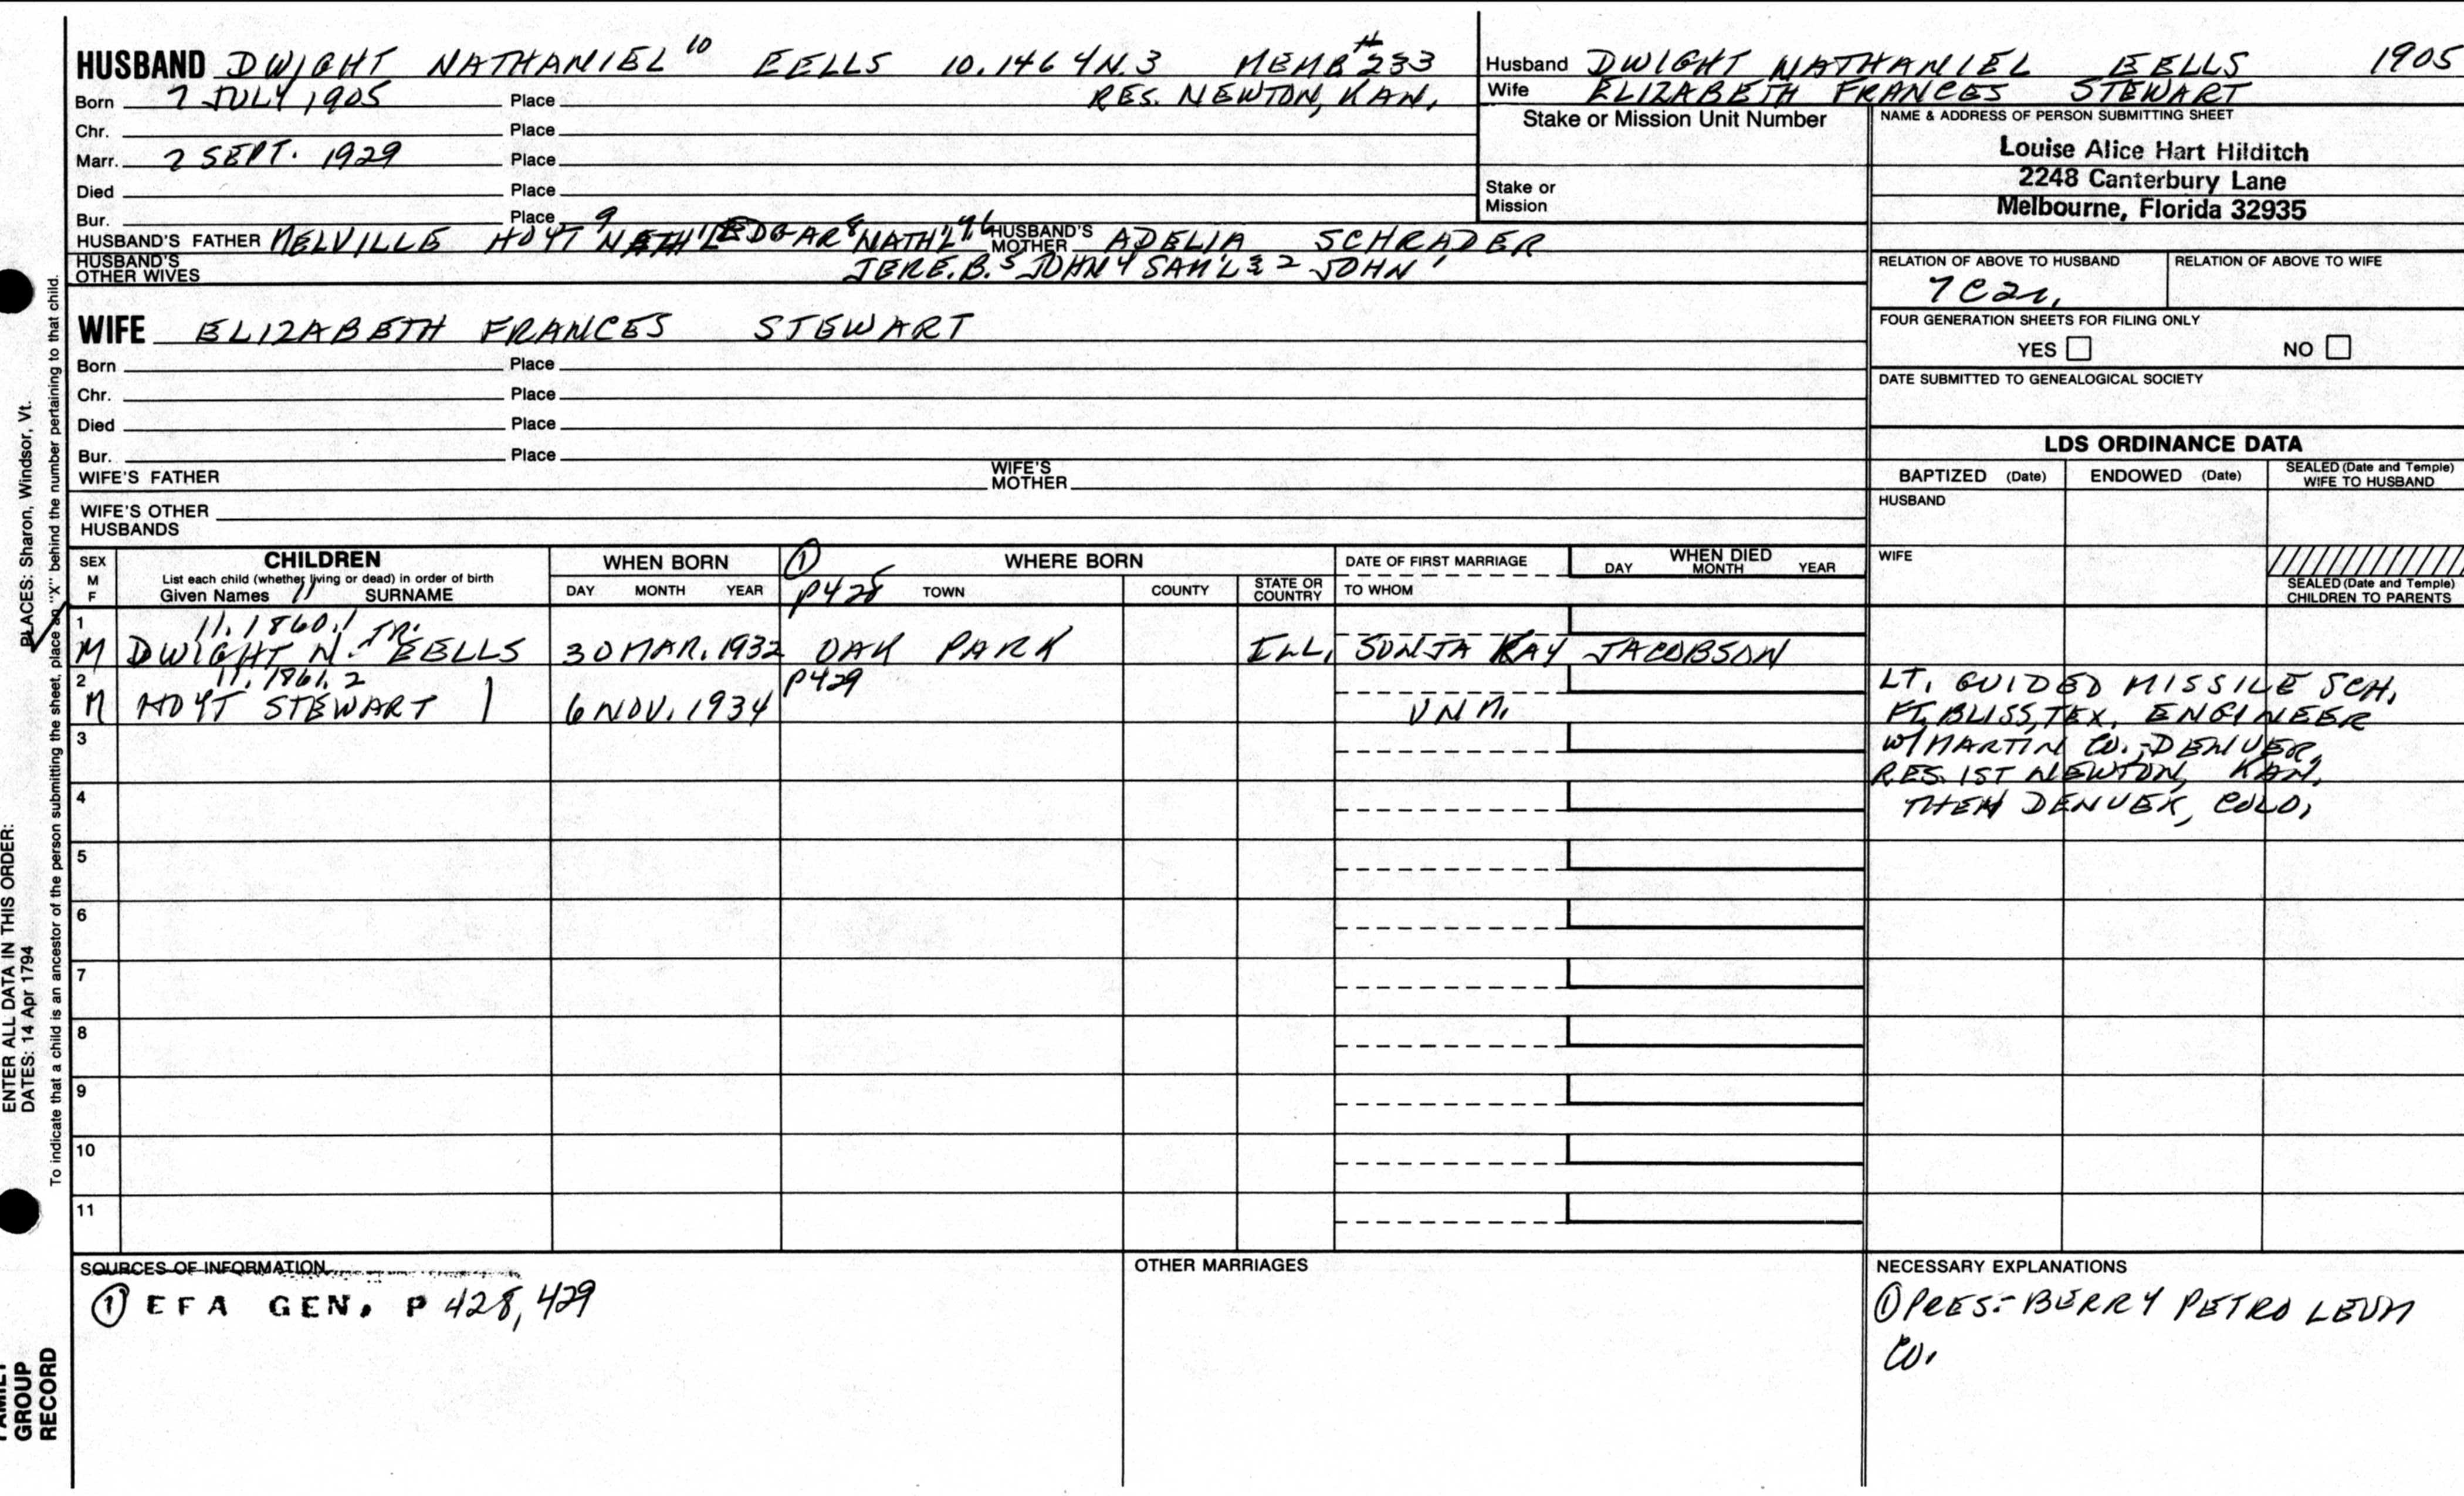 HUSBAND DWIGHT NATHANIEL 10 EELLS 10.1464N.3 MEMB # 233
Born 7 JULY 1905 Place RES. NEWTON, KAN.
Chr. Place
Marr. 7 SEPT. 1929 Place
Died Place
Bur. Place
HUSBAND'S FATHER MELVILLE HOYT 9 EDGAR 8 NATH'L 7 6 HUSBAND'S MOTHER ADELIA SCHRADER
HUSBAND'S OTHER WIVES JERE. B. 5 JOHN 4 SAM'L 3 2 JOHN 1
WIFE ELIZABETH FRANCES STEWART
Born Place
Chr. Place
Died Place
Bur. Place
WIFE'S FATHER WIFE'S MOTHER
WIFE'S OTHER HUSBANDS
Husband DWIGHT NATHANIEL EELLS 1905
Wife ELIZABETH FRANCES STEWART
Stake or Mission Unit Number
Stake or Mission
NAME & ADDRESS OF PERSON SUBMITTING SHEET
Louise Alice Hart Hilditch
2248 Canterbury Lane
Melbourne, Florida 32935
RELATION OF ABOVE TO HUSBAND RELATION OF ABOVE TO WIFE
7C2r.
FOUR GENERATION SHEETS FOR FILING ONLY
YES NO
DATE SUBMITTED TO GENEALOGICAL SOCIETY
LDS ORDINANCE DATA
BAPTIZED (Date) ENDOWED (Date) SEALED (Date and Temple) WIFE TO HUSBAND
HUSBAND
WIFE
SEALED (Date and Temple) CHILDREN TO PARENTS
SEX M F CHILDREN WHEN BORN ① WHERE BORN DATE OF FIRST MARRIAGE WHEN DIED
List each child (whether living or dead) in order of birth
Given Names 11 SURNAME DAY MONTH YEAR P428 TOWN COUNTY STATE OR COUNTRY TO WHOM DAY MONTH YEAR
1 11.1860.1
M DWIGHT N. JR. EELLS 30 MAR. 1932 OAK PARK ILL. SONJA KAY JACOBSON
2 11.1861.2 P429
M HOYT STEWART 6 NOV. 1934 UNM.
LT. GUIDED MISSILE SCH.
FT. BLISS, TEX. ENGINEER
W/MARTIN CO.-DENVER,
RES. 1ST NEWTON, KAN.
THEN DENVER, COLO.
3
4
5
6
7
8
9
10
11
SOURCES OF INFORMATION
① EFA GEN. P 428, 429
OTHER MARRIAGES
NECESSARY EXPLANATIONS
① PRES.- BERRY PETROLEUM
CO.
PLACES: Sharon, Windsor, Vt.
To indicate that a child is an ancestor of the person submitting the sheet, place an "X" behind the number pertaining to that child.
ENTER ALL DATA IN THIS ORDER:
DATES: 14 Apr 1794
GROUP
RECORD